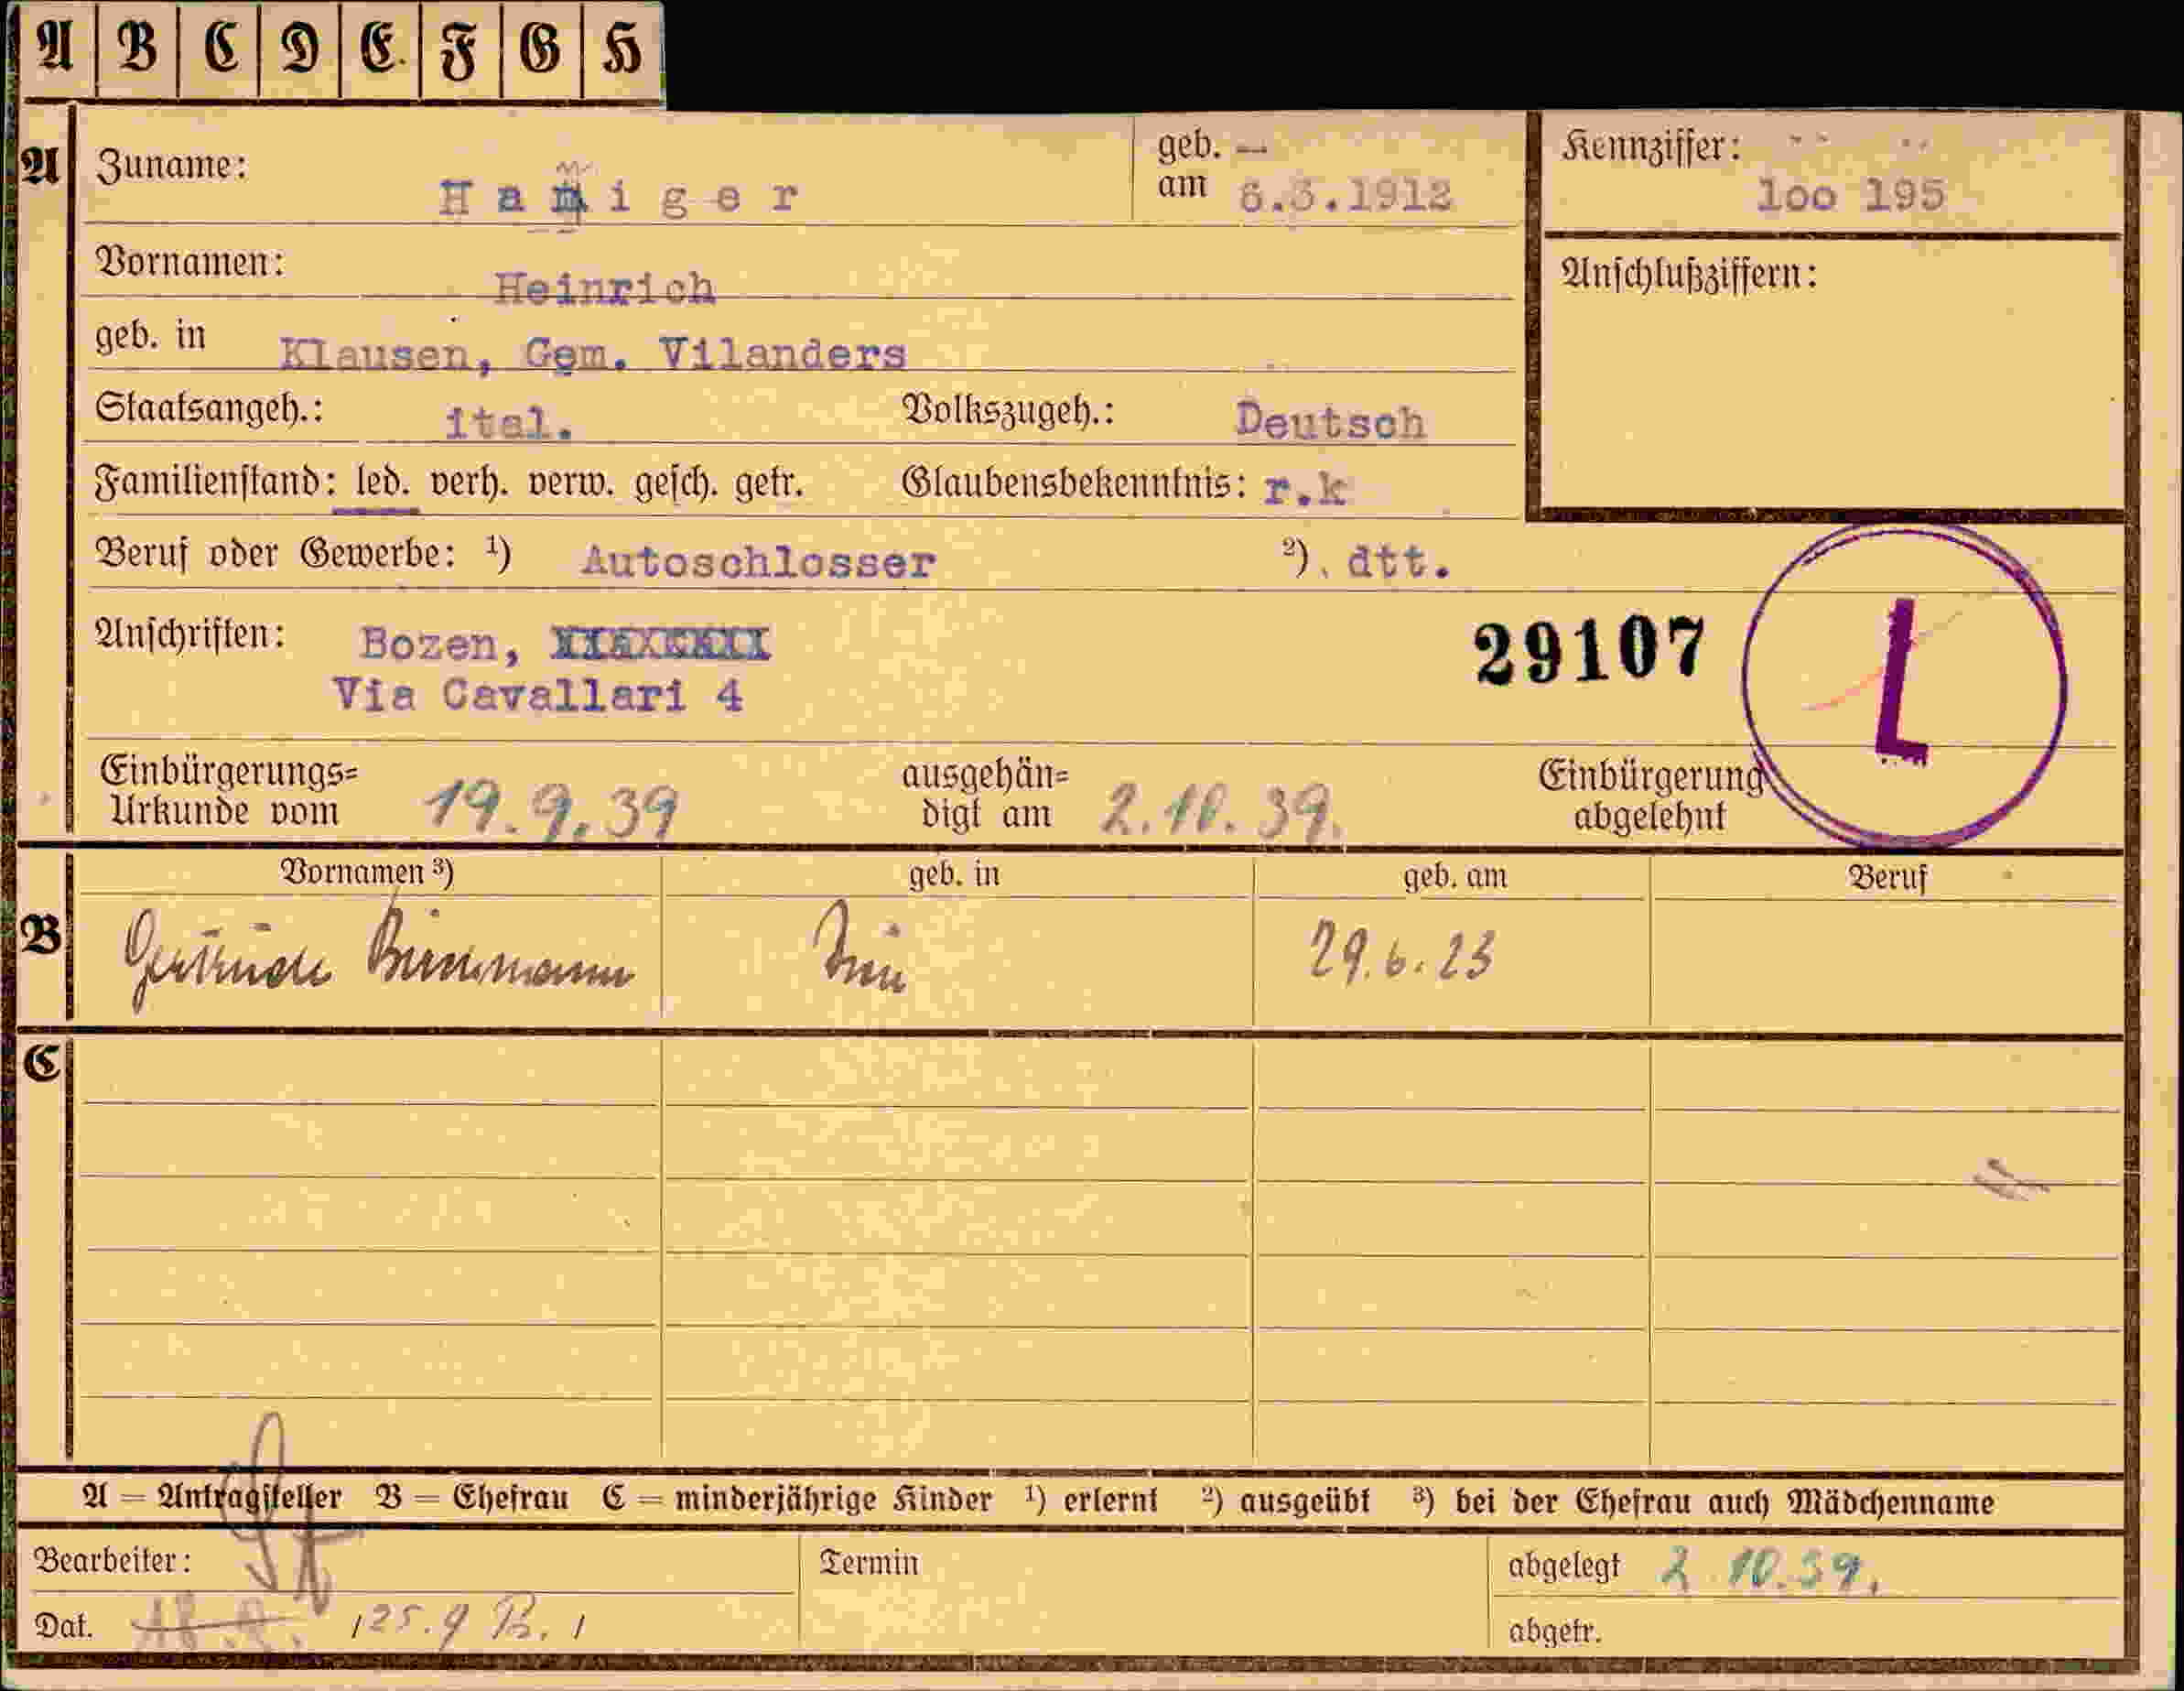 A B C D E F G H
A Zuname: Haniger geb. am 6.3.1912 Kennziffer: loo 195
Vornamen: Heinrich Anschlußziffern:
geb. in Klausen, Gem. Vilanders
Staatsangeh.: ital. Volkszugeh.: Deutsch
Familienstand: led. verh. verw. gesch. getr. Glaubensbekenntnis: r.k
Beruf oder Gewerbe: ¹) Autoschlosser ²) dtt.
Anschriften: Bozen,
Via Cavallari 4
29107
L
Einbürgerungs=
Urkunde vom 19.9.39 ausgehän=
digt am 2.10.39. Einbürgerung
abgelehnt
Vornamen ³) geb. in geb. am Beruf
B 29.6.23
C
A = Antragsteller B = Ehefrau C = minderjährige Kinder ¹) erlernt ²) ausgeübt ³) bei der Ehefrau auch Mädchenname
Bearbeiter: Termin abgelegt 2.10.39.
Dat. 18.9. /25.9 B. / abgetr.